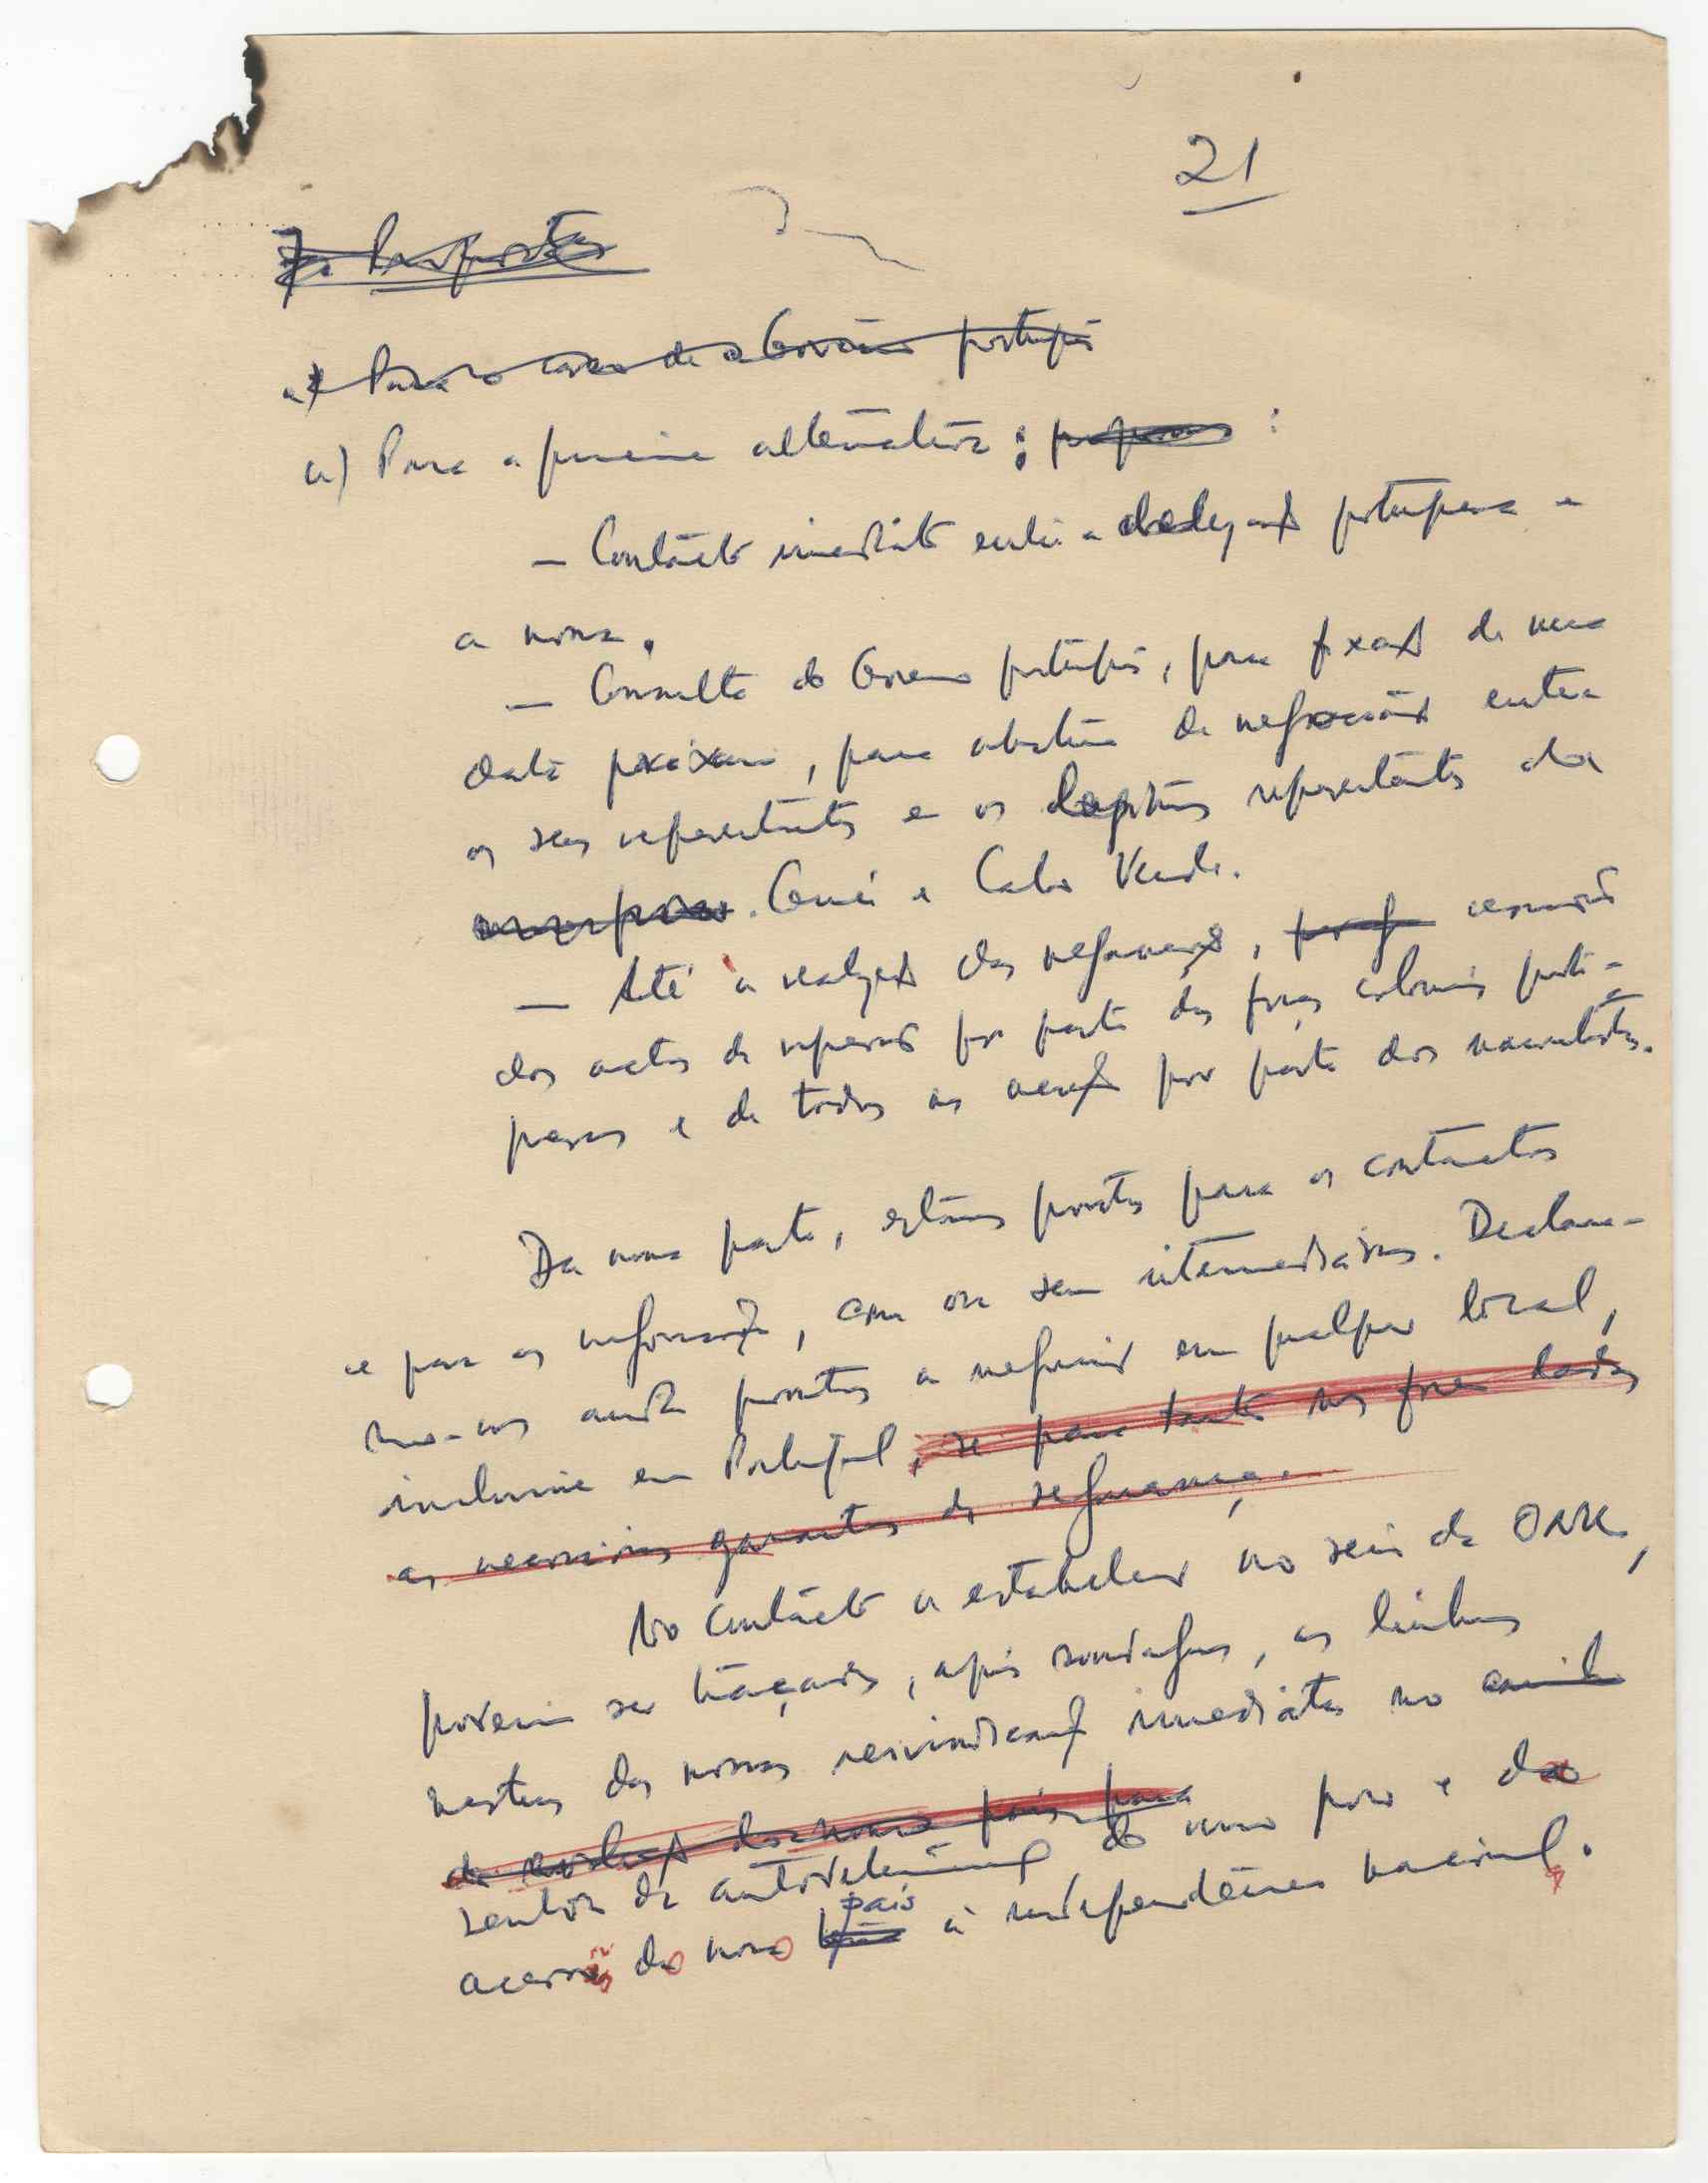 21
7. Propostas
a) Para o caso de o Govêrno português
a) Para a primeira alternativa: :
— Contacto imediato entre a delegação portuguesa e
a nossa.
— Consulta do Governo português, para fixação de uma
data próxima, para abertura de negociações entre
os seus representantes e os legítimos representantes da
Guiné e Cabo Verde.
— Até à realização das negociações, cessação
dos actos de repressão por parte das forças coloniais portu-
guesas e de todas as acções por parte dos nacionalistas.
Da nossa parte, estamos prontos para os contactos
e para as negociações, com ou sem intermediários. Declara-
mo-nos ainda prontos a negociar em qualquer local,
inclusive em Portugal, se para tanto nos forem dadas
as necessárias garantias de segurança.
No contacto a estabelecer no seio da ONU,
poderiam ser traçadas, após sondagens, as linhas
mestras das nossas reivindicações imediatas no caminho
da evolução do nosso país para
sentido da autodeterminação do nosso povo e da
ascensão do nosso país à independência nacional.